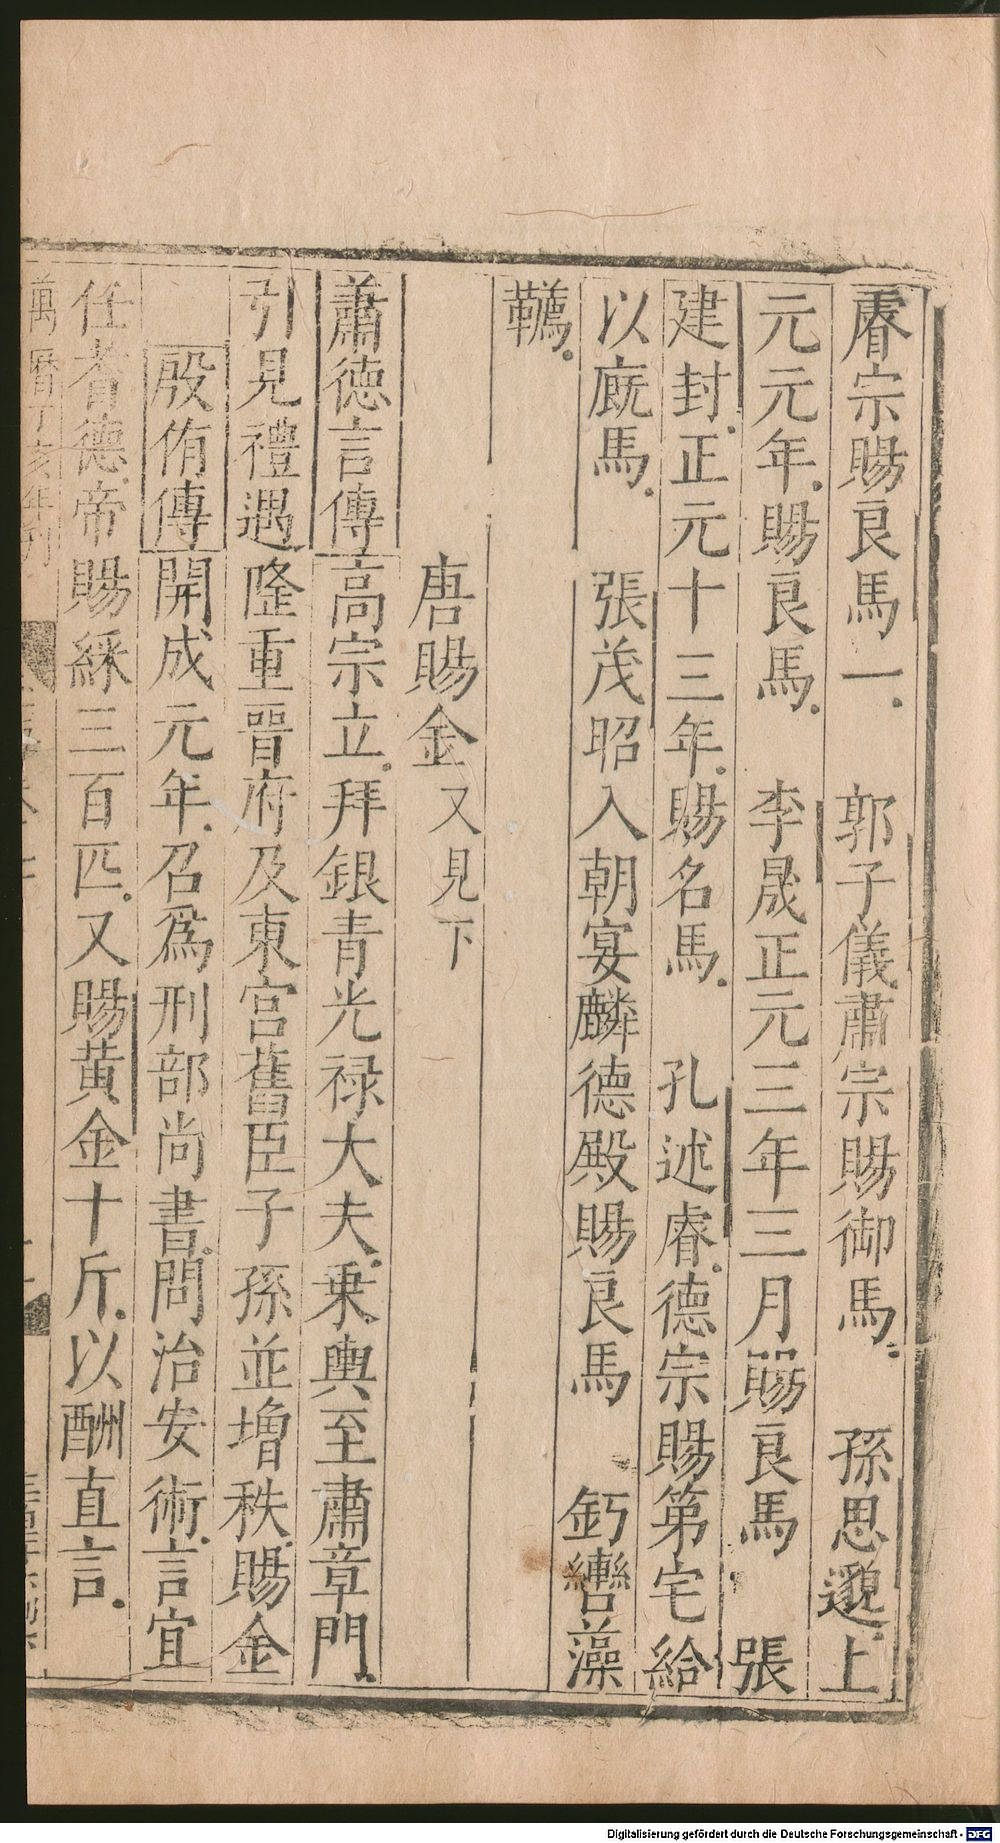 睿宗賜良馬一.　郭子儀.肅宗賜御馬.　孫思邈.上
元元年.賜良馬.　李晟正元三年三月賜良馬　張
建封.正元十三年.賜名馬.　孔述睿.德宗賜第宅給
以廐馬.　張茂昭入朝宴麟德殿賜良馬　鈣轡藻
韀.
唐賜金又見下
蕭德言傳高宗立.拜銀青光祿大夫.乘輿至肅章門.
引見禮遇隆重晉府及東宮舊臣子孫並增秩.賜金
殷侑傳開成元年.召爲刑部尚書.問治安術.言宜
任耆德.帝賜綵三百匹.又賜黃金十斤.以酬直言.
萬曆丁亥年刊
Digitalisierung gefördert durch die Deutsche Forschungsgemeinschaft - DFG